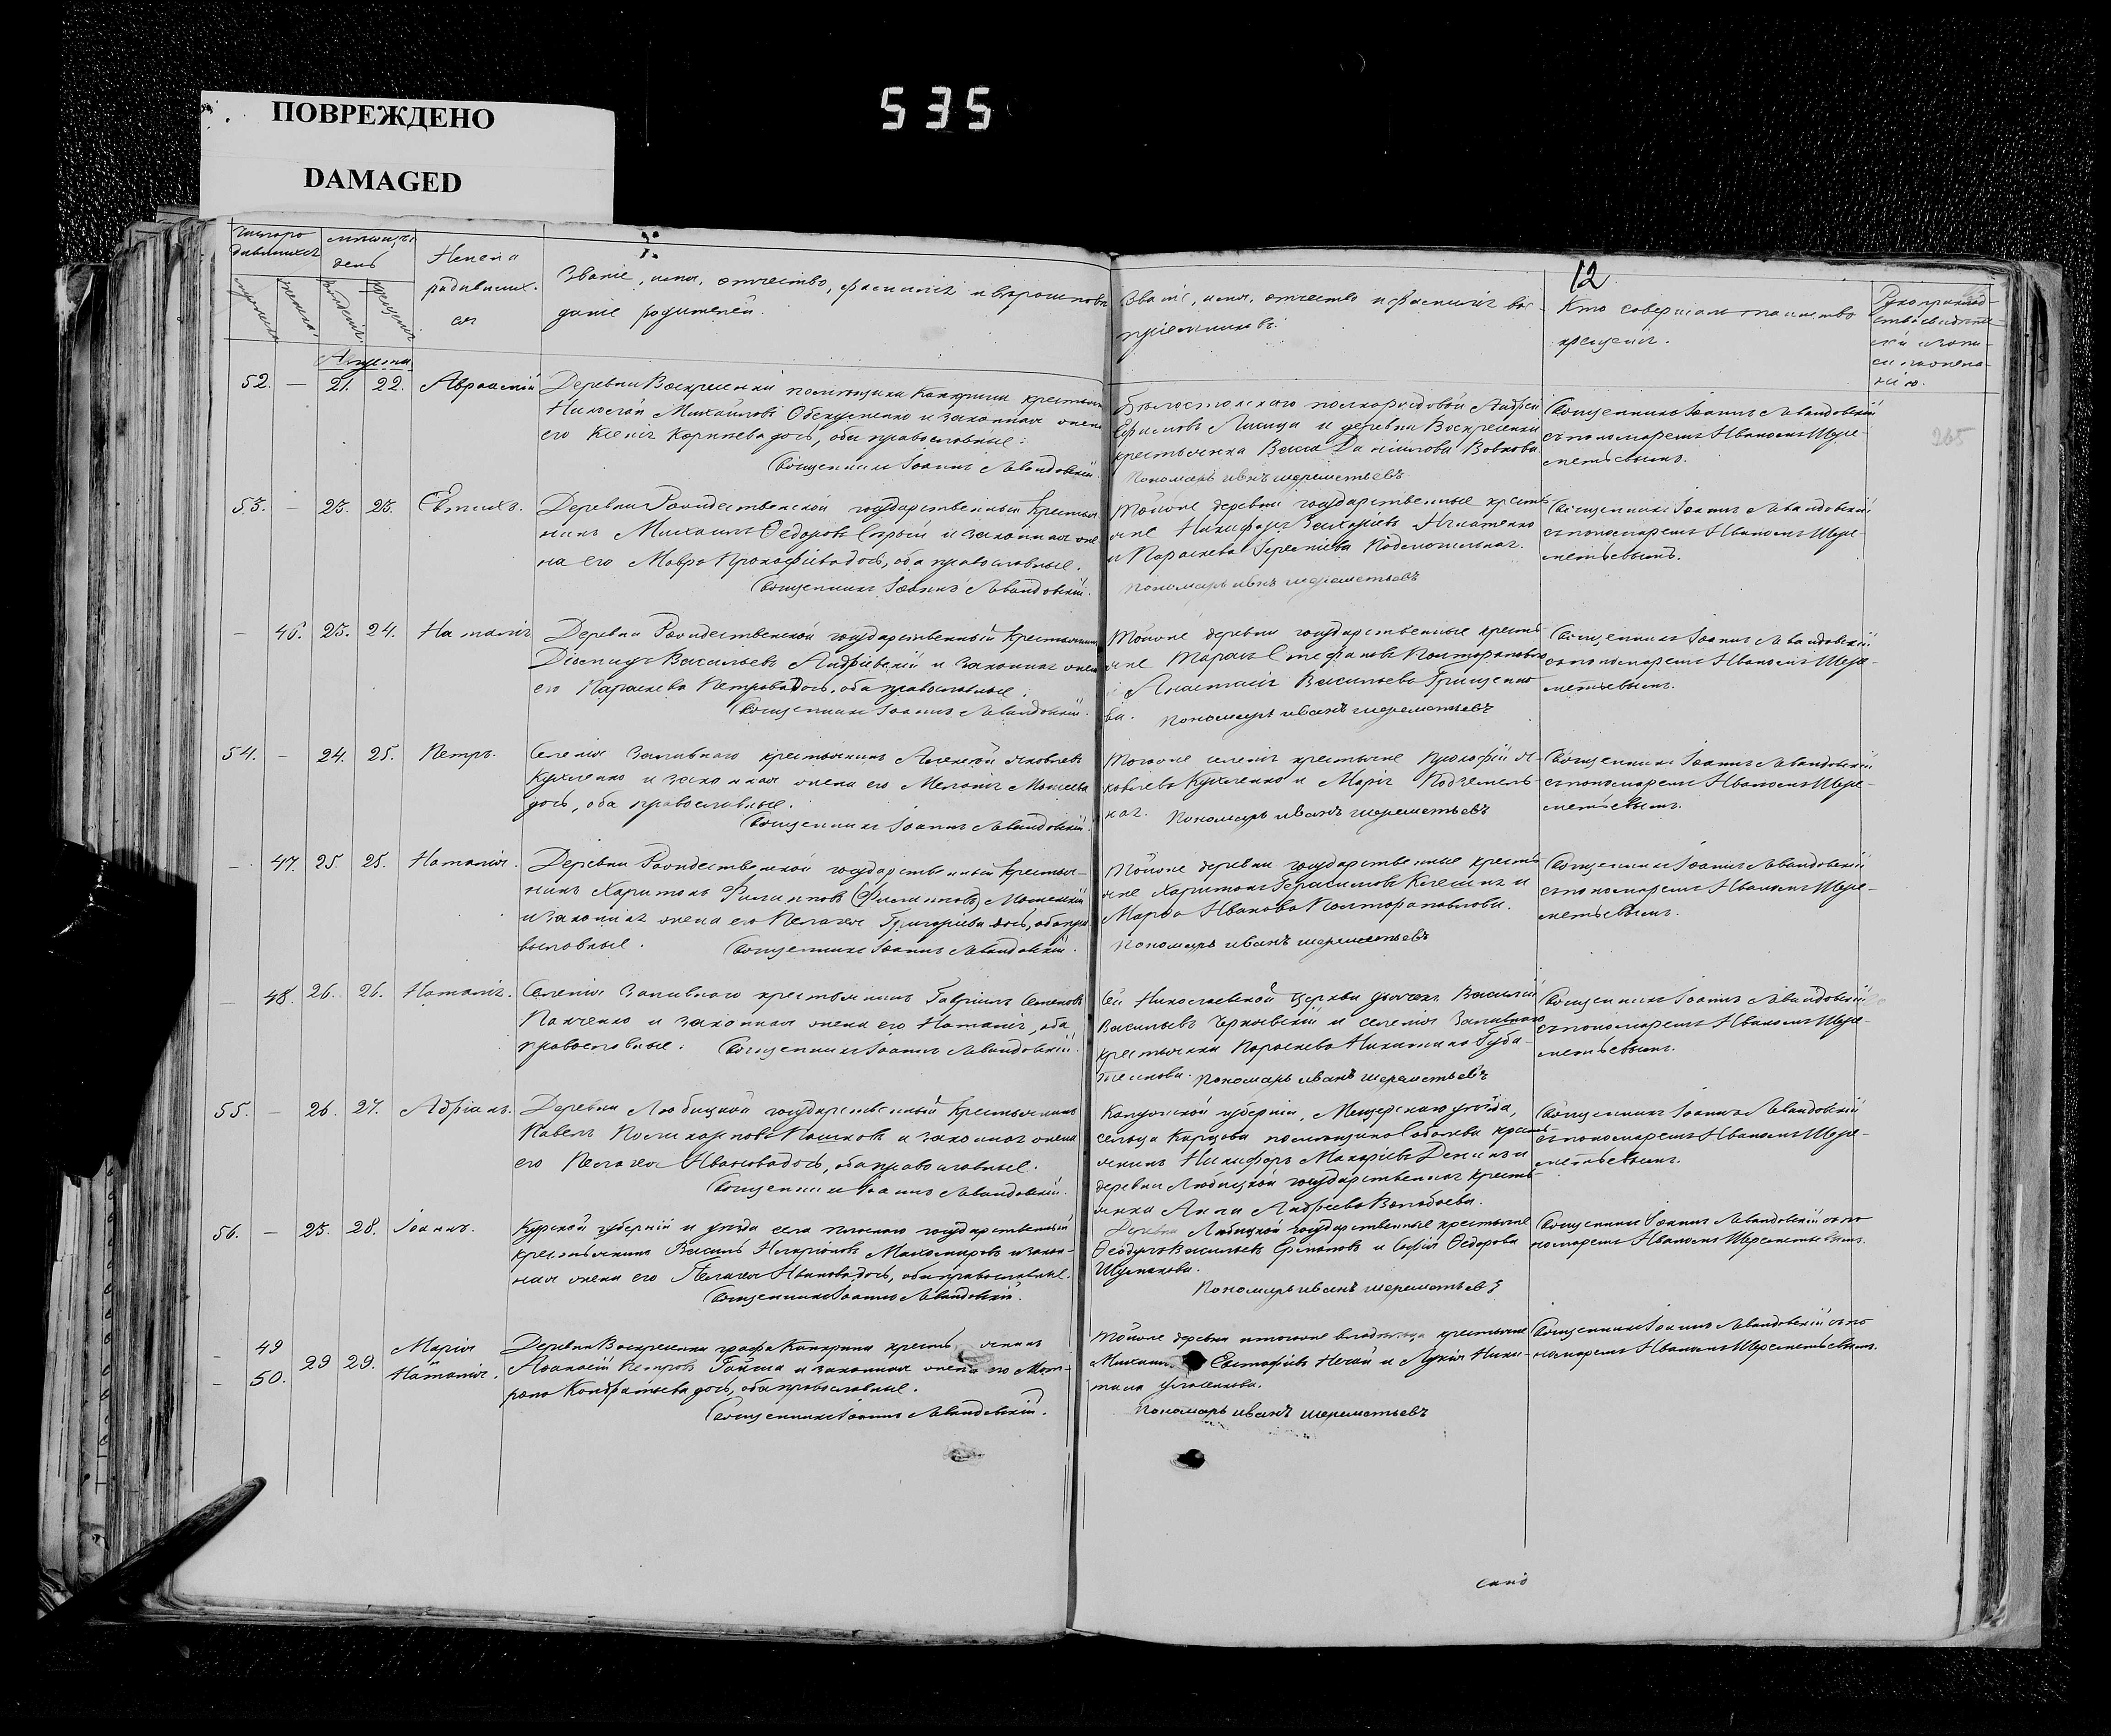 ПОВРЕЖДЕНО
DAMAGED
535
12
265
Число ро
дившихся
мѣсяцъ
день
Имена
родивших.
ся
Званіе, имя, отчество, фамилія и вѣроисповѣ
даніе родителей.
Званіе, имя, отчество и фамилія вос-
пріемниковъ.
Кто совершалъ таинство
крещенія.
Августа
52. — 21. 22. Авраамій
Деревни Воскресенки помѣщика Канкрина крестьян
Николай Михайловъ и законная жена
его Ксенія Корнѣева дочь, оба православные.
Священникъ Іоаннъ Левандовскій.
Ефимовъ Лисица и деревни Воскресенки
крестьянка Васса Даніилова Вовкова
Пономарь иванъ шереметьевъ
Священникъ Іоаннъ Левандовскій
съ пономаремъ Иваномъ Шере-
метьевымъ.
53. — 23. 23. Евтихъ.
Деревни Рождественской государственный крестья
нинъ Михаилъ Ѳедоровъ Сѣрый и законная же
на его Мавра Прокофіева дочь, оба православные.
Священникъ Іоаннъ Левандовскій.
Тойже деревни государственные кресть
яне Никифоръ Захаріевъ Игнатенко
и Параскева
Пономарь иванъ шереметьевъ
Священникъ Іоаннъ Левандовскій
съ пономаремъ Иваномъ Шере-
метьевымъ.
— 46. 23. 24. Наталія
Деревни Рождественской государственный крестьянинъ
Діомидъ Васильевъ Андріевскій и законная жена
его Параскева Петрова дочь, оба православные.
Священникъ Іоаннъ Левандовскій.
Тойже деревни государственные кресть
яне Тарасъ Стефановъ
Анастасія Васильева Грищенко
ва. Пономарь иванъ шереметьевъ
Священникъ Іоаннъ Левандовскій
съ пономаремъ Иваномъ Шере-
метьевымъ.
54. — 24. 25. Петръ.
Селенія Заливнаго крестьянинъ Алексѣй Яковлевъ
Кухленко и законная жена его Меланія Моисеева
дочь, оба православные.
Священникъ Іоаннъ Левандовскій.
Тогоже селенія крестьяне Прокофій Я-
ковлевъ Кухленко и Марія Подземель-
ная. Пономарь иванъ шереметьевъ
Священникъ Іоаннъ Левандовскій
съ пономаремъ Иваномъ Шере-
метьевымъ.
— 47. 25 25. Наталія.
Деревни Рождественской государственный крестья-
нинъ Харитонъ Филиповъ (Филиповъ)
и законная жена его Пелагея Григоріева дочь, оба пра
вославные. Священникъ Іоаннъ Левандовскій.
Тойже деревни государственные кресть
яне Харитонъ Герасимовъ и
Марѳа Иванова
Пономарь иванъ шереметьевъ
Священникъ Іоаннъ Левандовскій
съ пономаремъ Иваномъ Шере-
метьевымъ.
— 48. 26. 26. Наталія.
Селенія Заливнаго крестьянинъ Гавріилъ Семеновъ
Панченко и законная жена его Наталія, оба
православные. Священникъ Іоаннъ Левандовскій.
Сей Николаевской Церкви дьячекъ Василій
Васильевъ Чернявскій и селенія Заливнаго
крестьянка Параскева Никитина Губа-
Пономарь иванъ шереметьевъ
Священникъ Іоаннъ Левандовскій
съ пономаремъ Иваномъ Шере-
метьевымъ.
55. — 26. 27. Адріанъ.
Деревни Любицкой государственный крестьянинъ
Павелъ Поликарповъ Пашковъ и законная жена
его Пелагея Иванова дочь, оба православные.
Священникъ Іоаннъ Левандовскій.
Калужской губерніи, Мещерскаго уѣзда,
сельца помѣщика Соболева кресть-
янинъ Никифоръ Макаріевъ и
деревни Любицкой государственная кресть-
янка Анна Андреева
Священникъ Іоаннъ Левандовскій
съ пономаремъ Иваномъ Шере-
метьевымъ.
56. — 25. 28. Іоаннъ.
Курской губерніи и уѣзда села государственный
крестьянинъ Василь Иларіоновъ и закон-
ная жена его Пелагея Иванова дочь, оба православные.
Священникъ Іоаннъ Левандовскій.
Деревни Любицкой государственные крестьяне
Ѳеодулъ Васильевъ и Софія Ѳедорова
Шумакова.
Пономарь иванъ шереметьевъ
Священникъ Іоаннъ Левандовскій съ по
номаремъ Иваномъ Шереметьевымъ.
— 49 Марія
— 50. 29 29. Наталія.
Деревни Воскресенки графа Канкрина кресть янинъ
Аѳанасій Петровъ и законная жена его Мат-
рона Кондратьева дочь, оба православные.
Священникъ Іоаннъ Левандовскій.
Тойже деревни и тогоже владѣльца крестьяне
Михаилъ Евстафіевъ Нечай и Лукія Ники-
тина
Пономарь иванъ шереметьевъ
Священникъ Іоаннъ Левандовскій съ по
номаремъ Иваномъ Шереметьевымъ.